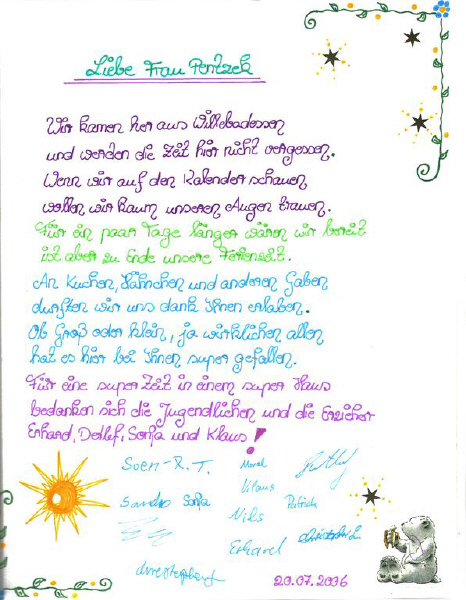 Liebe Frau Pentzek
Wir kamen her aus Willebadessen
und werden die Zeit hier nicht vergessen.
Wenn wir auf den Kalender schauen
wollen wir kaum unseren Augen trauen.
Für ein paar Tage länger wären wir bereit
ist aber zu Ende unsere Ferienzeit.
An Kuchen, Hähnchen und anderen Gaben
durften wir uns dank Ihnen erlaben.
Ob Groß oder klein, ja wirklichen allen
hat es hier bei Ihnen super gefallen.
Für eine super Zeit in einem super Haus
bedanken sich die Jugendlichen und die Erzieher
Erhard, Detlef, Sonja und Klaus!
Soen-R.T.
Klaus
Sandro Sonja Patrick
Nils
Erhard
20.07.2006